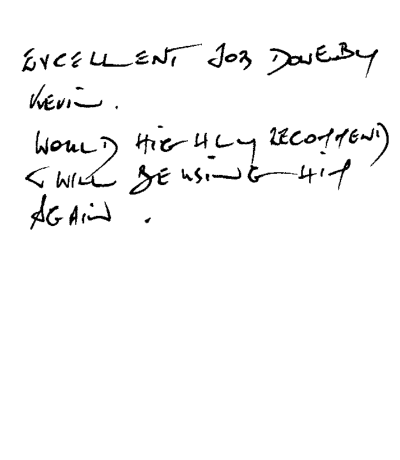 EXCELLENT JOB DONE BY
KEVIN.
WOULD HIGHLY RECOMMEND
& WILL BE USING HIM
AGAIN.